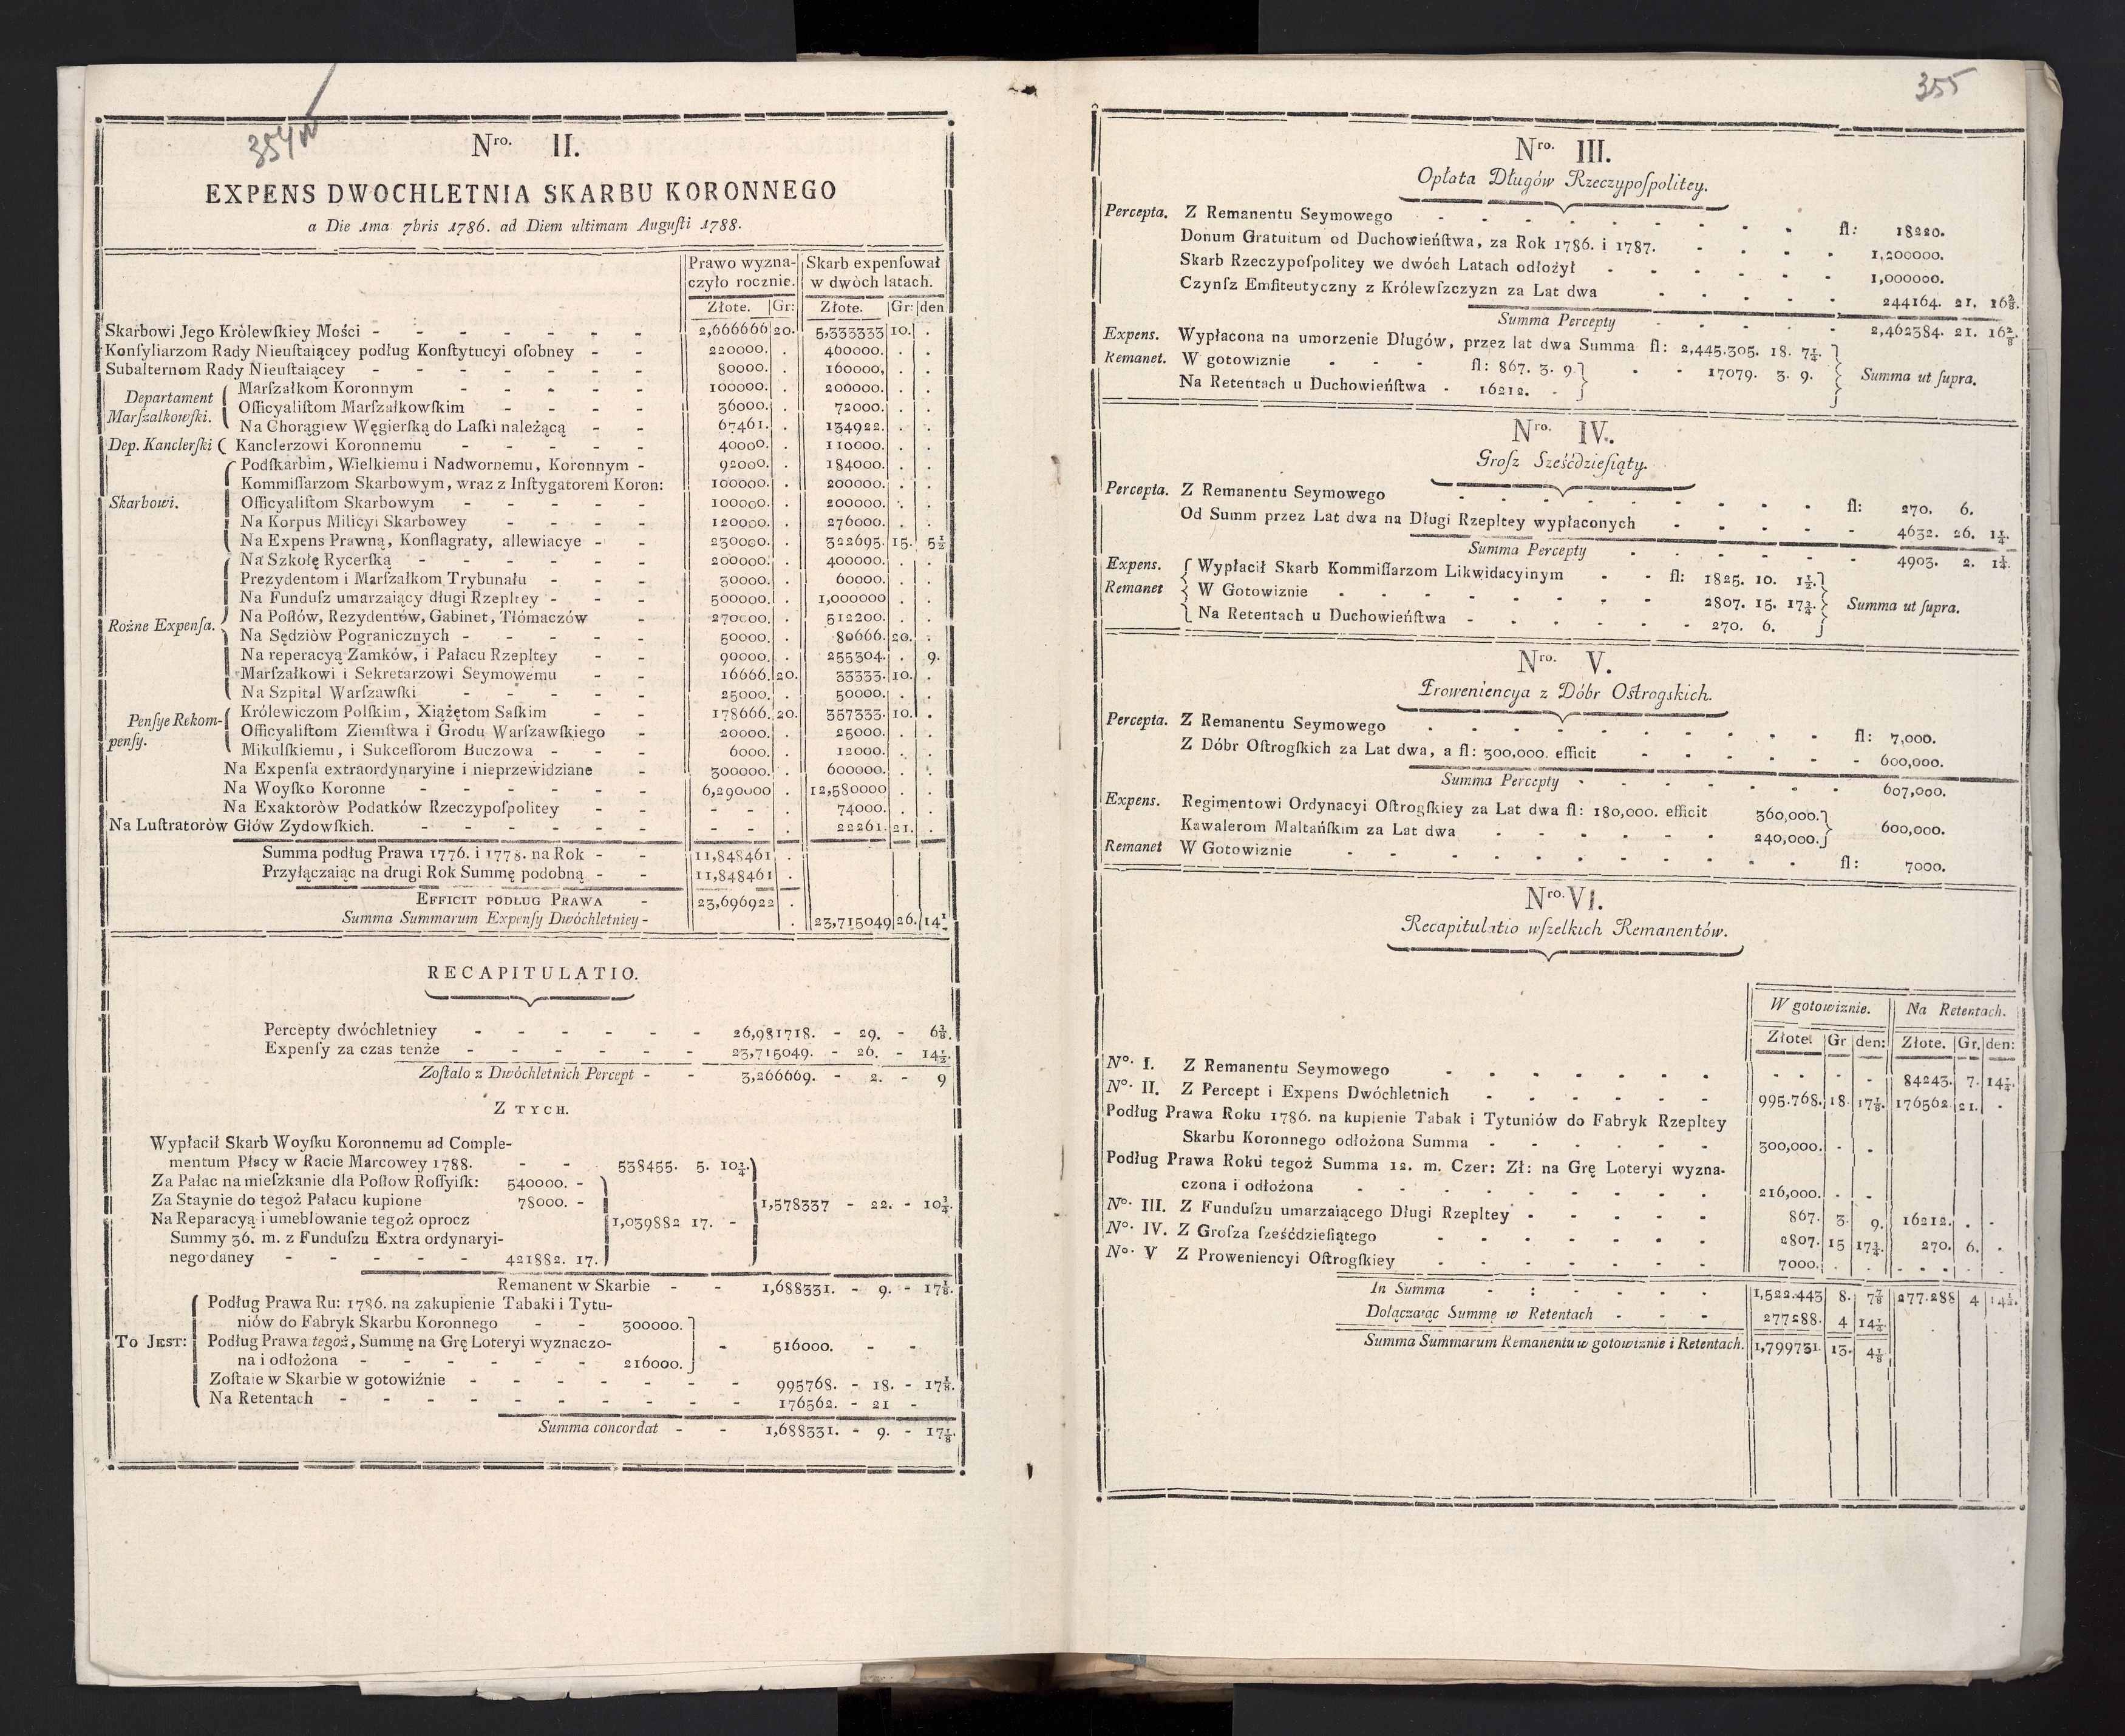 354v
Nro. II.
EXPENS DWOCHLETNIA SKARBU KORONNEGO
a Die 1ma 7bris 1786. ad Diem ultimam Auguſti 1788.
Prawo wyzna- Skarb expenſował
czyło rocznie. w dwóch latach.
Złote. Gr: Złote. Gr: den
Skarbowi Jego Królewſkiey Mości - - - - - - - 2,666666 20. 5,333333 10. .
Konſyliarzom Rady Nieuſtaiącey podług Konſtytucyi oſobney - - 220000. . 460000. . .
Subalternom Rady Nieuſtaiącey - - - - - - - 80000. . 160000, . .
Departament Marſzałkom Koronnym - - - - - 100000. . 200000. . .
Marſzalkowſki. Officyaliſtom Marſzałkowſkim - - - - 36000. . 72000. . .
Na Chorągiew Węgierſką do Laſki należącą - - 67461. . 134922. . .
Dep. Kanclerſki ( Kanclerzowi Koronnemu - - - - - 40000. . 110000. . .
Podſkarbim, Wielkiemu i Nadwornemu, Koronnym - 92000. . 184000. . .
Kommiſſarzom Skarbowym, wraz z Inſtygatorem Koron: 100000. . 200000. . .
Skarbowi. Officyaliſtom Skarbowym - - - - - 100000. . 200000. . .
Na Korpus Milicyi Skarbowey - - - - 120000. . 276000. . .
Na Expens Prawną, Konflagraty, allewiacye - - 230000. . 322695. 15. 5½
Na Szkołę Rycerſką - - - - - - 200000. . 400000. . .
Prezydentom i Marſzałkom Trybunału - - - 30000. . 60000. . .
Na Funduſz umarzaiący długi Rzepltey - - - 500000. . 1,000000 . .
Rożne Expenſa. Na Poſłów, Rezydentów, Gabinet, Tłómaczów - 270000. . 512200. . .
Na Sędziòw Pogranicznych - - - - - 50000. . 80666. 20. .
Na reperacyą Zamków, i Pałacu Rzepltey - - 90000. . 255304. . 9.
Marſzałkowi i Sekretarzowi Seymowemu - - 16666. 20. 33333. 10. .
Na Szpital Warſzawſki - - - - - 25000. . 50000. . .
Penſye Rekom- Królewiczom Polſkim, Xiążętom Saſkim - - 178666. 20. 357333. 10. .
penſy. Officyaliſtom Ziemſtwa i Grodu Warſzawſkiego - 20000. . 25000. . .
Mikulſkiemu, i Sukceſſorom Buczowa - - - 6000. . 12000. . .
Na Expenſa extraordynaryine i nieprzewidziane - 300000. . 600000. . .
Na Woyſko Koronne - - - - - - 6,290000 . 12,580000 . .
Na Exaktoròw Podatków Rzeczypoſpolitey - - - - . 74000. . .
Na Luſtratoròw Głów Zydowſkich. - - - - - - - - . 22261. 21. .
Summa podług Prawa 1776. i 1778. na Rok - - 11,848461 .
Przyłączaiąc na drugi Rok Summę podobną - - 11,848461 .
EFFICIT PODŁUG PRAWA - 23,696922 .
Summa Summarum Expenſy Dwóchletniey - . 23,715049 26. 14½
RECAPITULATIO.
Percepty dwóchletniey - - - - - - 26,981718. - 29. - 6⅜.
Expenſy za czas tenże - - - - - - 23,715049. - 26. - 14½.
Zoſtalo z Dwóchletnich Percept - - 3,266669. - 2. - 9
Z TYCH.
Wypłacił Skarb Woyſku Koronnemu ad Comple-
mentum Płacy w Racie Marcowey 1788. - - 538455. 5. 10¾.
Za Pałac na mieſzkanie dla Poſłow Roſſyiſk: 540000. -
Za Staynie do tegoż Pałacu kupione 78000. - 1,578337 - 22. - 10¾.
Na Reparacyą i umeblowanie tegoż oprocz 1,039882 17. -
Summy 36. m. z Funduſzu Extra ordynaryi-
nego daney - - - - - 421882. 17.
Remanent w Skarbie - - 1,688331. - 9. - 17⅛.
Podług Prawa Ru: 1786. na zakupienie Tabaki i Tytu-
niów do Fabryk Skarbu Koronnego - - 300000.
TO JEST: Podług Prawa tegoż, Summę na Grę Loteryi wyznaczo- - 516000. - -
na i odłożona - - - - - - 216000.
Zoſtaie w Skarbie w gotowiźnie - - - - - - - 995768. - 18. - 17⅛.
Na Retentach - - - - - - - - - - 176562. - 21 -
Summa concordat - - 1,688331. - 9. - 17⅛.
355
Nro. III.
Opłata Długów Rzeczypoſpolitey.
Percepta. Z Remanentu Seymowego - - - - - - - - - fl: 18220.
Donum Gratuitum od Duchowieńſtwa, za Rok 1786. i 1787. - - - - 1,200000.
Skarb Rzeczypoſpolitey we dwóch Latach odłożył - - - - - - 1,000000.
Czynſz Emfiteutyczny z Królewſzczyzn za Lat dwa - - - - - 244164. 21. 16⅜.
Summa Percepty - - - - - 2,462384. 21. 16⅜.
Expens. Wypłacona na umorzenie Długów, przez lat dwa Summa fl: 2,445.305. 18. 7¼.
Remanet. W gotowiznie - - - fl: 867. 3. 9. - - 17079. 3. 9. Summa ut ſupra.
Na Retentach u Duchowieńſtwa - 16212. -
Nro. IV.
Groſz Sześćdzieſiąty.
Percepta. Z Remanentu Seymowego - - - - - - - - - fl: 270. 6.
Od Summ przez Lat dwa na Długi Rzepltey wypłaconych - - - - - 4632. 26. 1¼.
Summa Percepty - - - - - - 4903. 2. 1¼.
Expens. Wypłacił Skarb Kommiſſarzom Likwidacyinym - - fl: 1825. 10. 1½.
Remanet W Gotowiznie - - - - - - - - 2807. 15. 17¾. Summa ut ſupra.
Na Retentach u Duchowieńſtwa - - - - - - 270. 6.
Nro. V.
Proweniencya z Dóbr Oſtrogskich.
Percepta. Z Remanentu Seymowego - - - - - - - - - fl: 7,000.
Z Dóbr Oſtrogſkich za Lat dwa, a fl: 300,000. efficit - - - - - - 600,000.
Summa Percepty - - - - - - 607,000.
Expens. Regimentowi Ordynacyi Oſtrogſkiey za Lat dwa fl: 180,000. efficit 360,000.
Kawalerom Maltańſkim za Lat dwa - - - - - - 240,000. 600,000.
Remanet W Gotowiznie - - - - - - - - - - - fl: 7000.
Nro. VI.
Recapitulatio wſzelkich Remanentów.
W gotowiznie. Na Retentach.
Złote. Gr den: Złote. Gr. den:
No. I. Z Remanentu Seymowego - - - - - - - - - - - 84243. 7. 14¼.
No. II. Z Percept i Expens Dwóchletnich - - - - - - 995.768. 18. 17⅛. 176562. 21. -
Podług Prawa Roku 1786. na kupienie Tabak i Tytuniów do Fabryk Rzepltey
Skarbu Koronnego odłożona Summa - - - - - - 300,000. - -
Podług Prawa Roku tegoż Summa 12. m. Czer: Zł: na Grę Loteryi wyzna-
czona i odłożona - - - - - - - - - 216,000. - -
No. III. Z Funduſzu umarzaiącego Długi Rzepltey - - - - - 867. 3. 9. 16212. . -
No. IV. Z Groſza ſześćdzieſiątego - - - - - - - 2807. 15 17¾. 270. 6. .
No. V Z Proweniencyi Oſtrogſkiey - - - - - - - 7000. . . - - - -
In Summa - : - - - - 1,522.443 8. 7⅞ 277.288 4 14¼.
Dołączaiąc Summę w Retentach - - - 277288. 4 14¼
Summa Summarum Remanentu w gotowiznie i Retentach. 1,799731. 13. 4⅛